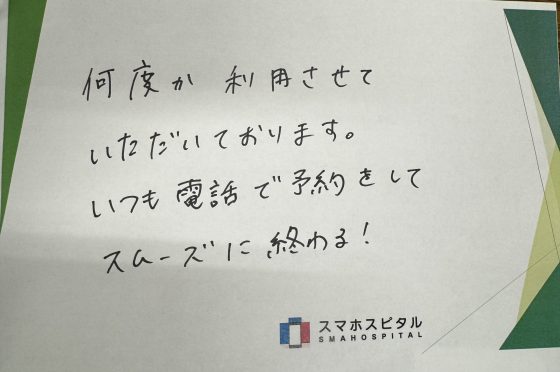 何度か利用させて
いただいております。
いつも電話で予約をして
スムーズに終わる!
スマホスピタル
SMAHOSPITAL